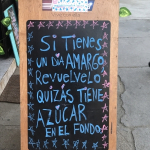 Si tienes
un día amargo
Revuelvelo
quizás tiene
azúcar
en el fondo